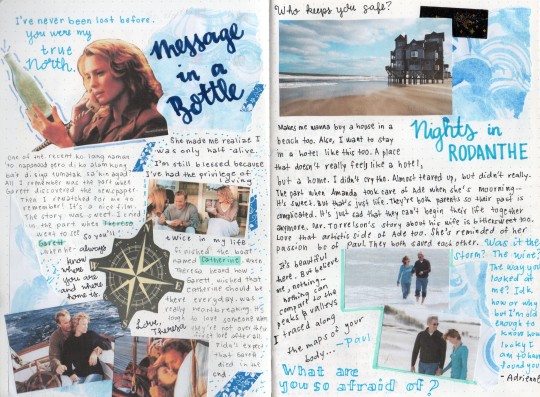 I've never been lost before.
you were my
true
North.
message
in a
Bottle
She made me realize I
was only half-alive.
I'm still blessed because
I've had the privilege of
loving
twice in my life
One of the recent ko lang naman
napanood pero di ko alam kung
ba't di siya tumatak sa'kin agad.
All I remember was the part when
Garett discovered the newspaper
Then I rewatched for me to
remember! It's a nice film.
The story was sweet. I cried
in the part when Theresa
Garett
always
know
where
you are
and where
home is.
I finished the boat
named Catherine. When
Theresa heard how
Garett wished that
Catherine should be
there everyday, was
really heartbreaking. It's
tough to lose someone when
they're not over the
first love after all.
I didn't expect
that Garett
died in the
end.
Love, Theresa
Who keeps you safe?
Makes me wanna buy a house in a
beach too. Also, I want to stay
in a hotel like this too. A place
that doesn't really feel like a hotel,
but a home. I didn't cry tho. Almost teared up, but didn't really.
The part when Amanda took care of Ade when she's mourning...
It's sweet. But that's just life. They're both parents so their past is
complicated. It's just sad that they can't begin their life together
anymore. Mr. Torrelson's story about his wife is bittersweet too.
Love that artistic side of Ade too. She's reminded of her
passion bc of Paul. They both saved each other.
Nights in
RODANTHE
It's beautiful
here. But believe
me, nothing...
nothing can
compare to the
peaks & valleys
I traced along
the maps of your
body... -Paul
Was it the
storm? The wine?
The way you
looked at
me? Idk
how or why
but I'm old
enough to
know how
lucky I
am to have
found you.
- Adrienne
What are
you so afraid of?